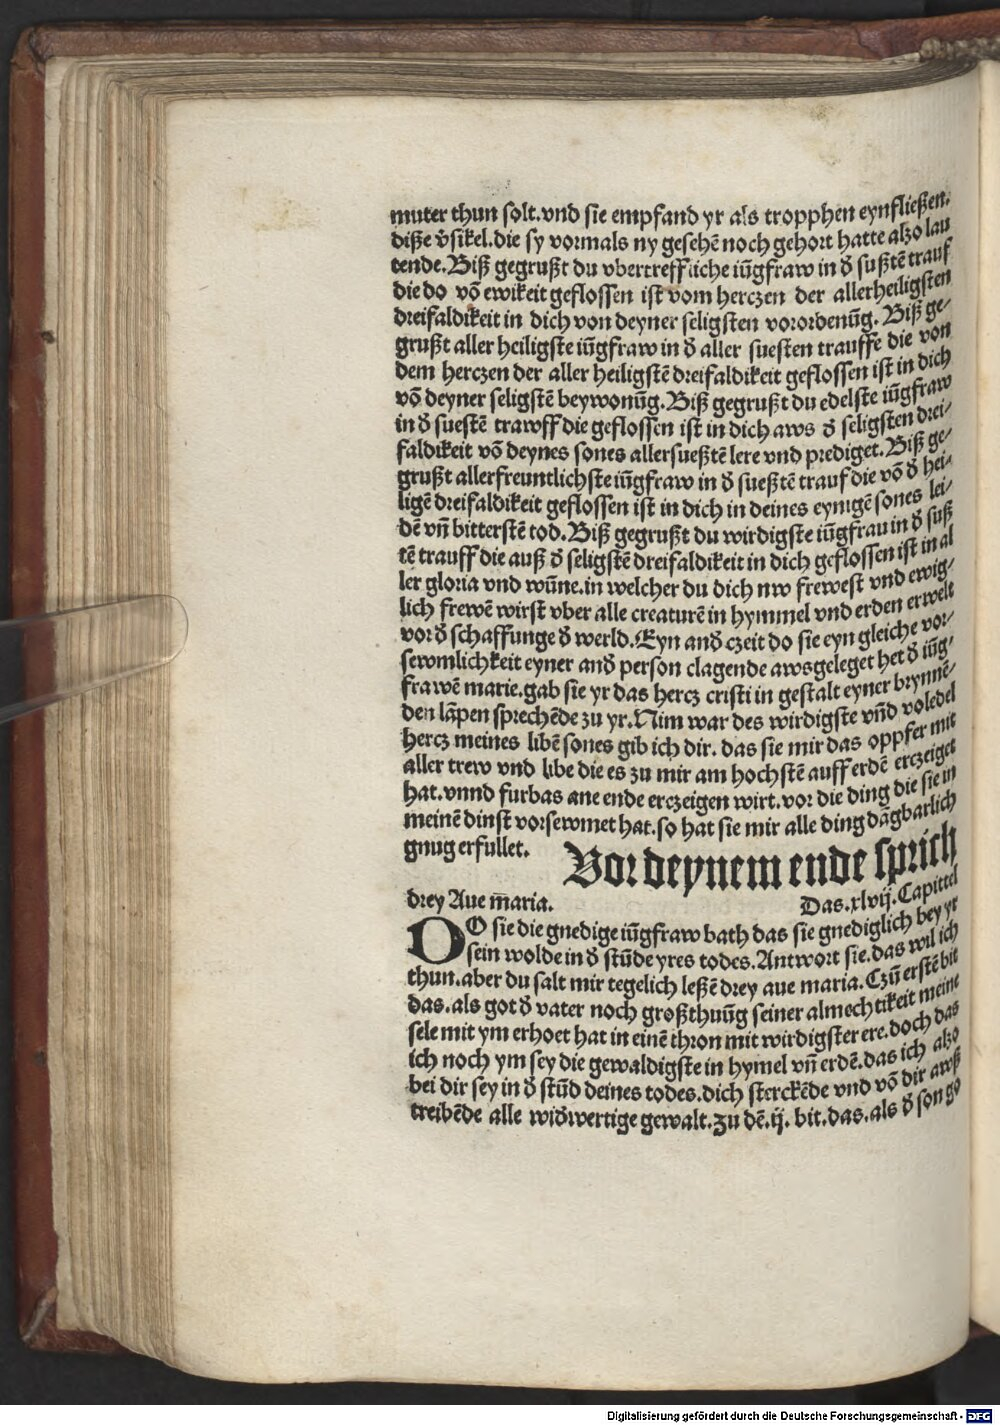 muter thun solt.vnd sie empfand yr als tropphen eynfließen.
diße v̉sikel.die sy vormals ny gesehē noch gehort hatte alzo lau
tende.Biß gegrußt du vbertreffliche iūgfraw in ð sußtē trauf
die do vō ewikeit geflossen ist vom herczen der allerheiligsten
dreifaldikeit in dich von deyner seligsten vorordenūg. Biß ge⸗
grußt aller heiligste iūgfraw in ð aller suesten trauffe die von
dem herczen der aller heiligstē dreifaldikeit geflossen ist in dich
vō deyner seligstē beywonūg.Biß gegrußt du edelste iūgfraw
in ð suestē trawff die geflossen ist in dich aws ð seligsten drei⸗
faldikeit vō deynes sones allersueßtē lere vnd prediget.Biß ge⸗
grußt allerfreuntlichste iūgfraw in ð sueßtē trauf die vō ð hei⸗
ligē dreifaldikeit geflossen ist in dich in deines eynigē sones lei⸗
dē vn̄ bitterstē tod.Biß gegrußt du wirdigste iūgfrau in ð suß
tē trauff die auß ð seligstē dreifaldikeit in dich geflossen ist in al
ler gloria vnd wūne.in welcher du dich nw frewest vnd ewig⸗
lich frewē wirst vber alle creaturē in hymmel vnd erden erwelt
vor ð schaffunge ð werld.Eyn anð czeit do sie eyn gleiche vor⸗
sewmlichkeit eyner anð person clagende awsgeleget het ð iūg⸗
frawē marie.gab sie yr das hercz cristi in gestalt eyner brynnē⸗
den lāpen sprechēde zu yr.Nim war des wirdigste vn̄d voledel
hercz meines libē sones gib ich dir. das sie mir das oppfer mit
aller trew vnd libe die es zu mir am hochstē auff erdē erczeiget
hat.vnnd furbas ane ende erczeigen wirt.vor die ding die sie in
meinē dinst vorsewmet hat.so hat sie mir alle ding dāgbarlich
gnug erfullet. Vor deynem ende sprich
drey Aue m̄aria. Das.xlvij.Capittel
DO sie die gnedige iūgfraw bath das sie gnediglich bey yr
sein wolde in ð stūde yres todes.Antwort sie.das wil ich
thun.aber du salt mir tegelich leßē drey aue maria.Czū erstē bit
das.als got ð vater noch großthuūg seiner almechtikeit meine
sele mit ym erhoet hat in einē thron mit wirdigster ere.doch das
ich noch ym sey die gewaldigste in hymel vn̄ erdē.das ich alzo
bei dir sey in ð stūd deines todes.dich sterckēde vnd vō dir awß
treibēde alle widwertige gewalt.zu dē.ij. bit.das.als ð son go
Digitalisierung gefördert durch die Deutsche Forschungsgemeinschaft - DFG